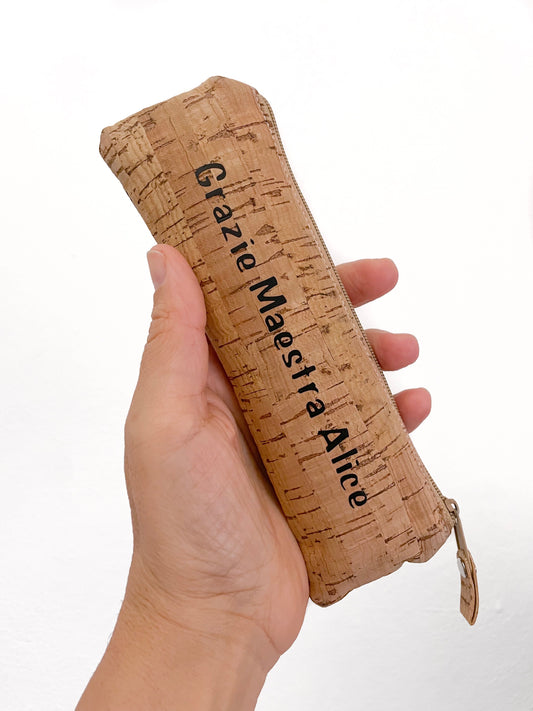 Grazie Maestra Alice